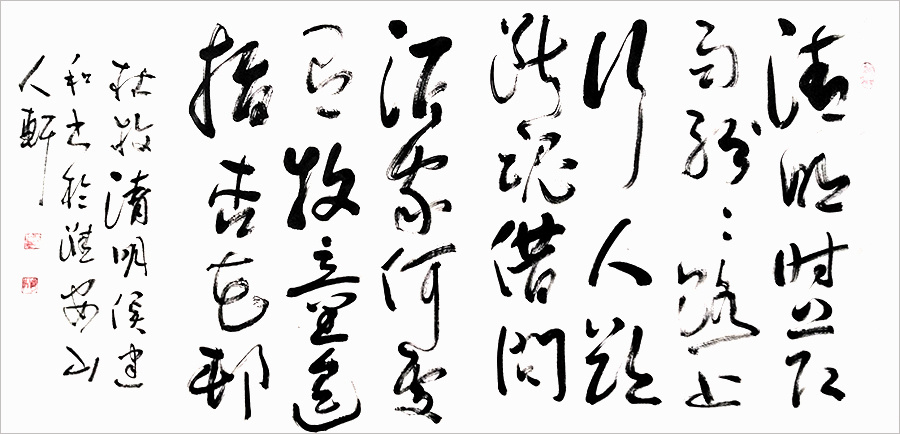 清明时节
雨纷〻路上
行人欲
断魂借问
酒家何處
有牧童遥
指杏花邨
杜牧清明侯建
和书於淮安山
人軒